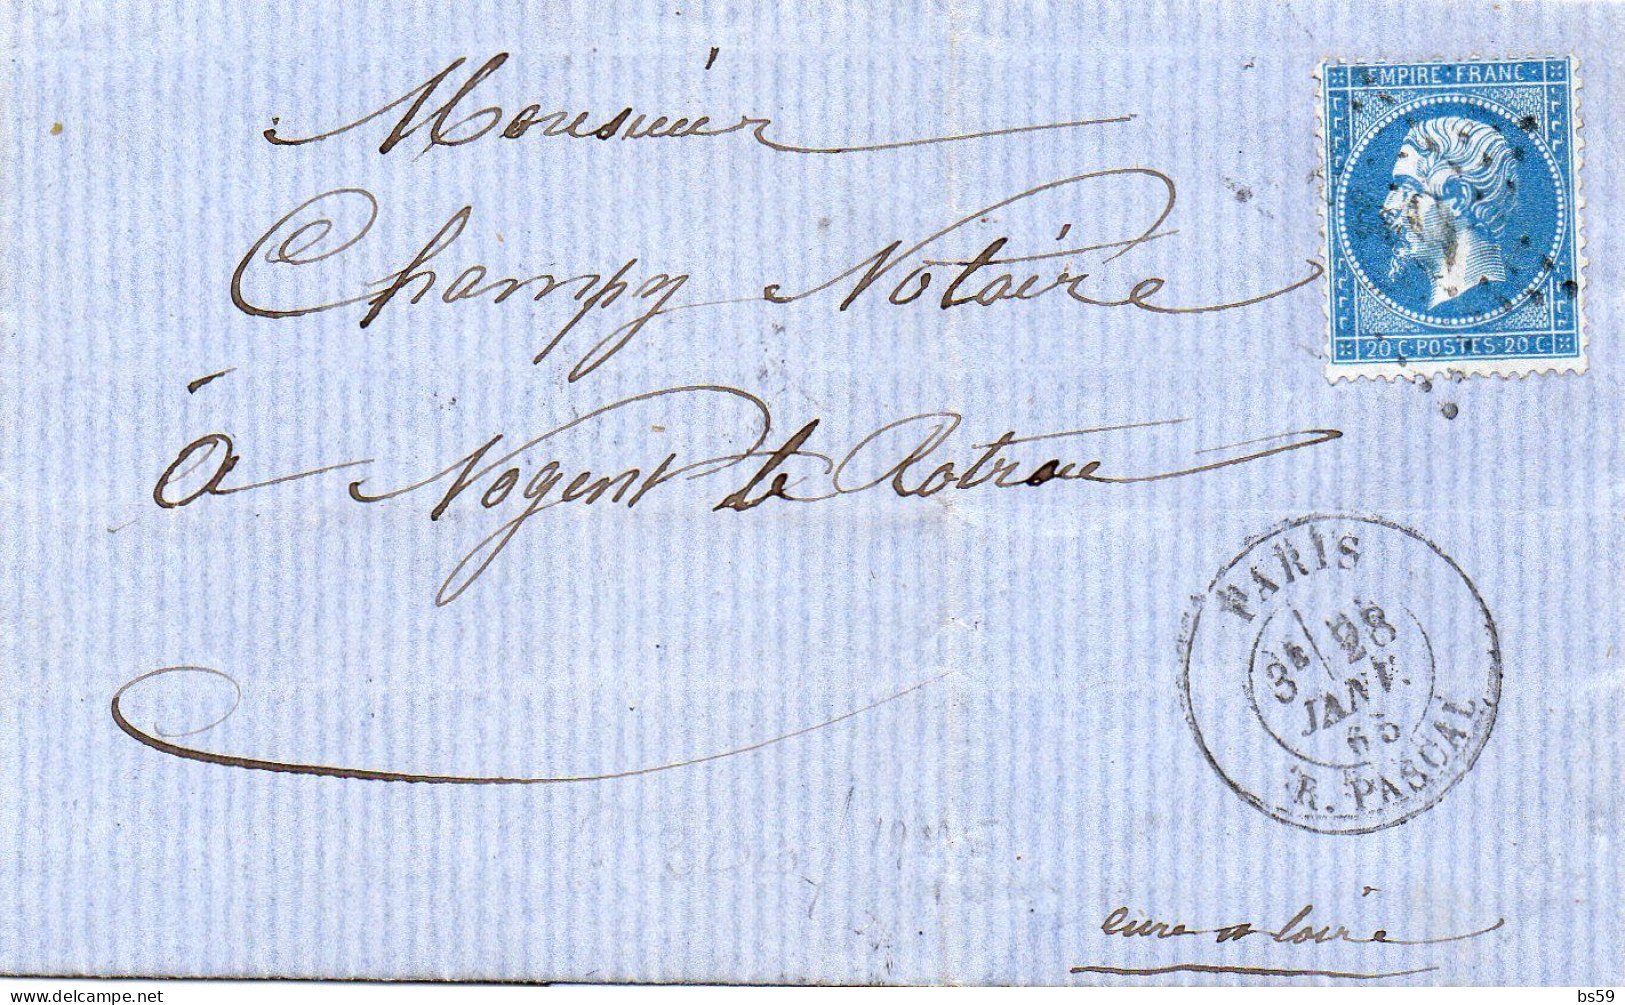 Monsieur
Champy Notaire
à Nogent le Rotrou
EMPIRE · FRANC ·
20 C · POSTES · 20 C
PARIS
3E 28
JANV.
65
R. PASCAL
eure et loire
delcampe.net
bs59